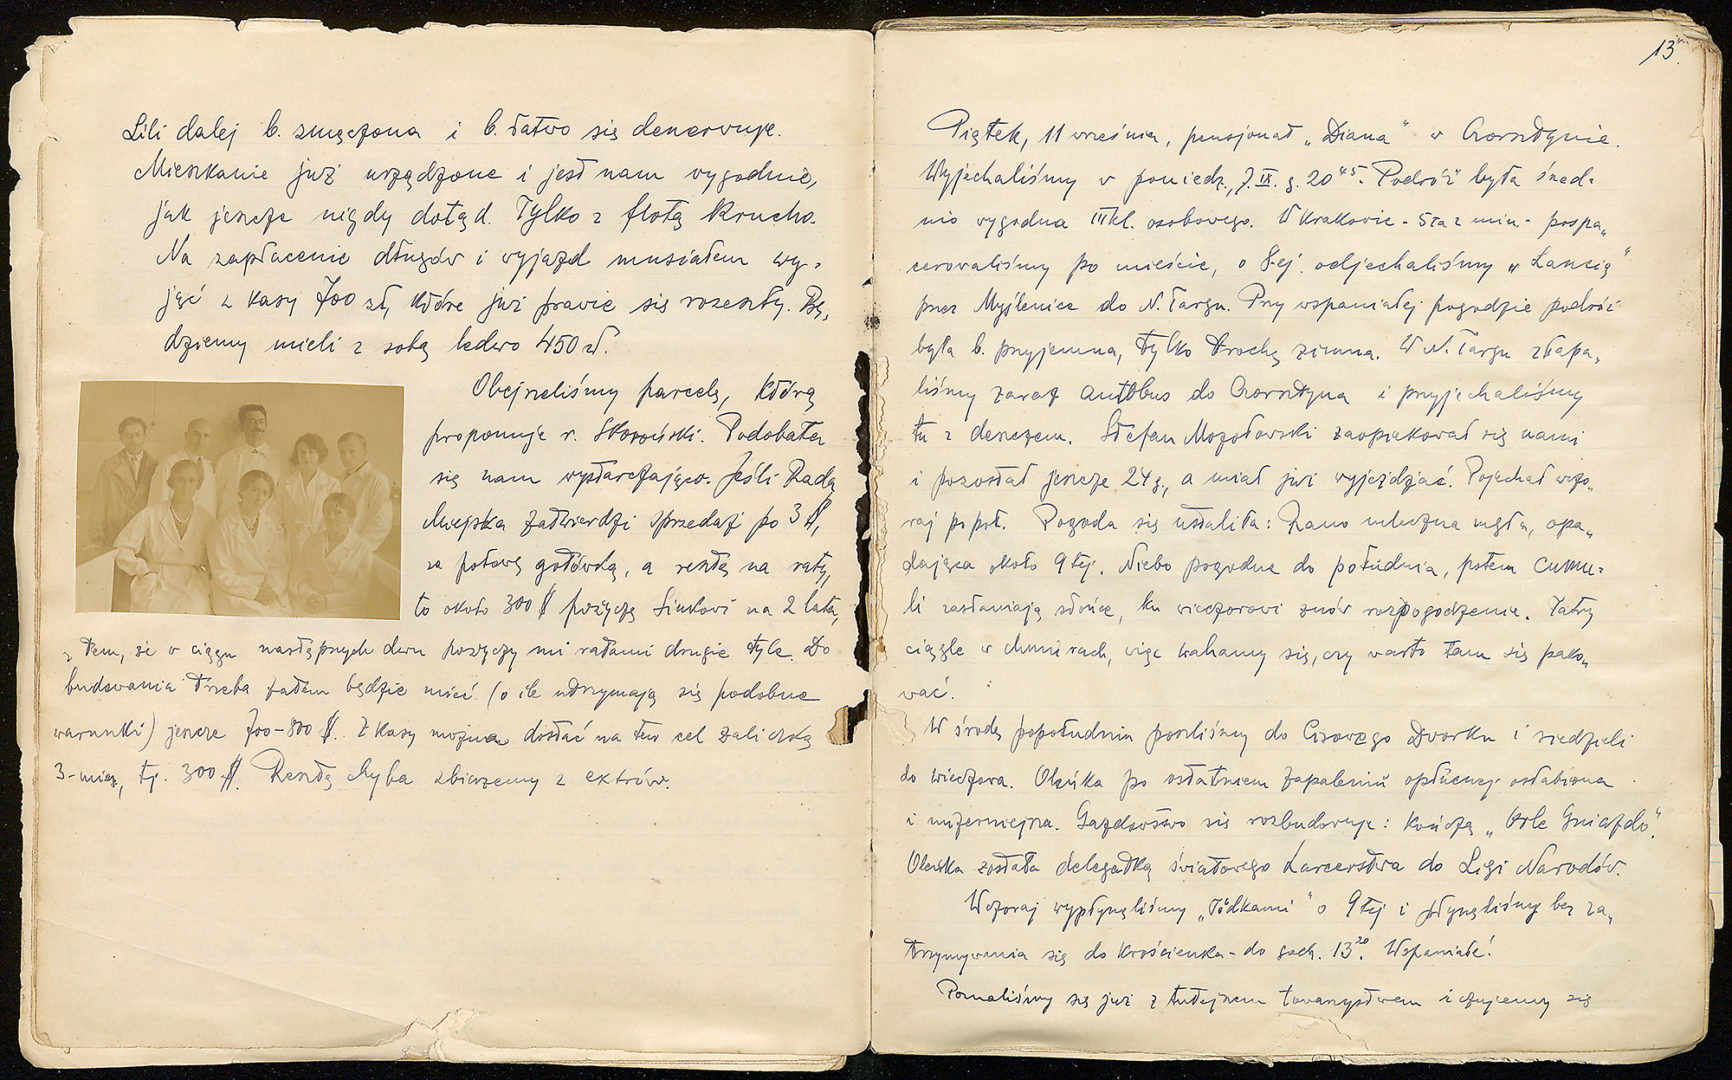 Lili dalej b. zmęczona i b. łatwo się denerwuje.
Mieszkanie już urządzone i jest nam wygodnie,
jak jeszcze nigdy dotąd. Tylko z flotą krucho.
Na zapłacenie długów i wyjazd musiałem wy-
jąć z kasy 700 zł, które już prawie się rozeszły. Bę-
dziemy mieli z sobą ledwo 450 zł.
Obejrzeliśmy parcelę, którą
proponuje r. Skoroński. Podobała
się nam wystarczająco. Jeśli Rada
Miejska zatwierdzi sprzedaż po 3 $,
za połowę gotówką, a resztę na raty,
to około 300 $ pożyczę Sinkowi na 2 lata,
z tem, że w ciągu następnych dwu pożyczy mi ratami drugie tyle. Do
budowania trzeba zatem będzie mieć (o ile utrzymają się podobne
warunki) jeszcze 700-800 $. Z kasy można dostać na ten cel zaliczkę
3-mies, tj. 300 $. Resztę chyba zbierzemy z extrów.
13.
Piątek, 11 września, pensjonat „Diana" w Czorsztynie.
Wyjechaliśmy w poniedz., 7.IX. g. 20⁴⁵. Podróż była śred-
nio wygodna III kl. osobowego. W Krakowie - 5ta z min. - pospa-
cerowaliśmy po mieście, o 8-ej odjechaliśmy „Lancią"
przez Myślenice do N. Targu. Przy wspaniałej pogodzie podróż
była b. przyjemna, tylko trochę zimna. W N. Targu złapa-
liśmy zaraz autobus do Czorsztyna i przyjechaliśmy
tu z deszczem. Stefan Mozołowski zaopiekował się nami
i pozostał jeszcze 24 g., a miał już wyjeżdżać. Pojechał wczo-
raj po poł. Pogoda się ustaliła: Rano mleczna mgła, opa-
dająca około 9tej. Niebo pogodne do południa, potem cumu-
li zasłaniają słońce, ku wieczorowi znów rozpogodzenie. Tatry
ciągle w chmurach, więc wahamy się, czy warto tam się pako-
wać.
W środę popołudniu poszliśmy do Cisowego Dworku i siedzieli
do wieczora. Oleńka po ostatniem zapaleniu opłucnej osłabiona
i mizerniejsza. Gazdostwo się rozbudowuje: kończą „Orle Gniazdo".
Oleńka została delegatką światowego harcerstwa do Ligi Narodów.
Wczoraj wypłynęliśmy „łódkami" o 9tej i płynęliśmy bez za-
trzymywania się do Krościenka - do godz. 13²⁰. Wspaniałe!
Poznaliśmy się już z tutejszem towarzystwem i czujemy się